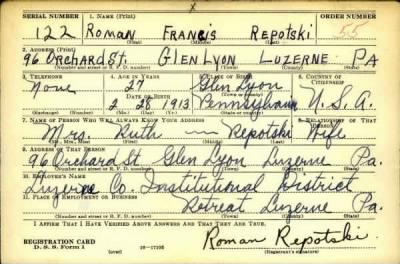 SERIAL NUMBER 1. NAME (Print) ORDER NUMBER
122 Roman Francis Repotski 55
(First) (Middle) (Last)
2. ADDRESS (Print)
96 Orchard St. Glen Lyon Luzerne PA
(Number and street or R. F. D. number) (Town) (County) (State)
3. TELEPHONE 4. AGE IN YEARS 5. PLACE OF BIRTH 6. COUNTRY OF CITIZENSHIP
None 27 Glen Lyon
DATE OF BIRTH (Town or county)
2 28 1913 Pennsylvania U.S.A.
7. NAME OF PERSON WHO WILL ALWAYS KNOW YOUR ADDRESS 8. RELATIONSHIP OF THAT PERSON
Mrs. Ruth — Repotski Wife
(Mr., Mrs., Miss) (First) (Middle) (Last)
9. ADDRESS OF THAT PERSON
96 Orchard St Glen Lyon Luzerne Pa.
(Number and street or R. F. D. number) (Town) (County) (State)
10. EMPLOYER'S NAME
Luzerne Co. Institutional District
11. PLACE OF EMPLOYMENT OR BUSINESS
Retreat Luzerne Pa.
(Number and street or R. F. D. number) (Town) (County) (State)
I AFFIRM THAT I HAVE VERIFIED ABOVE ANSWERS AND THAT THEY ARE TRUE.
Roman Repotski
REGISTRATION CARD
D. S. S. Form 1 (over) 16—17105 (Registrant's signature)